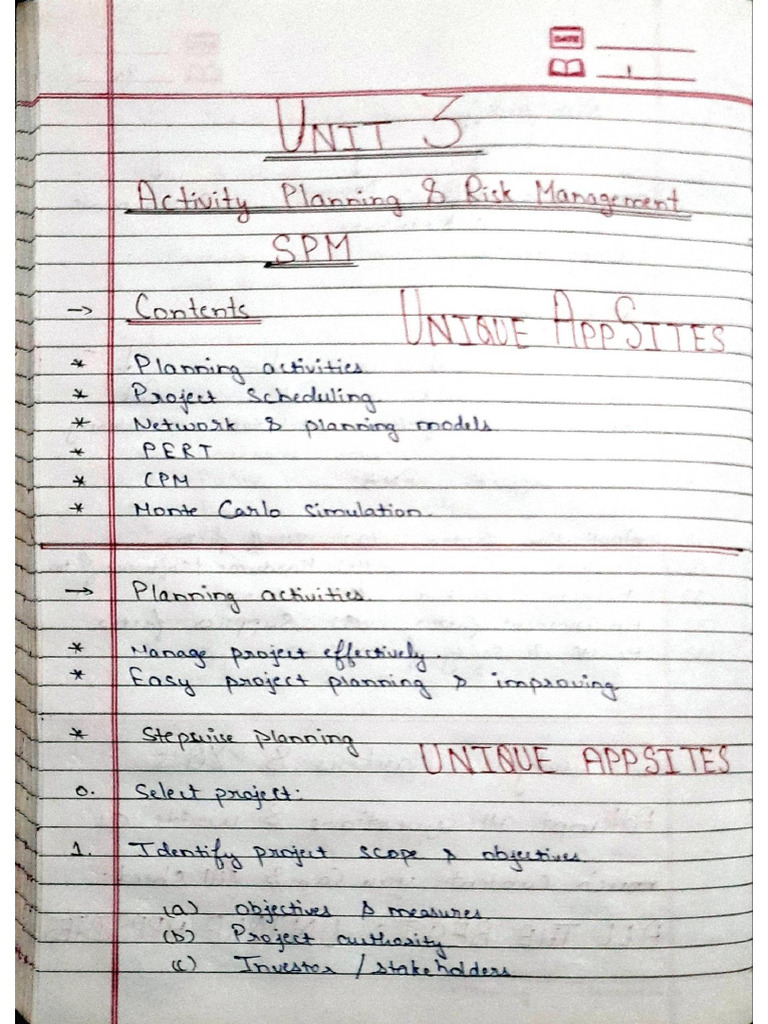 DATE
UNIT 3
Activity Planning & Risk Management
SPM
→ Contents
UNIQUE APPSITES
* Planning activities
* Project Scheduling.
* Network & planning models.
* PERT
* CPM
* Monte Carlo Simulation.
→ Planning activities.
* Manage project effectively.
* Easy project planning & improving
* Stepwise planning
UNIQUE APPSITES
0. Select project:
1. Identify project scope & objectives.
(a) objectives & measures
(b) Project authority
(c) Investor / stakeholders